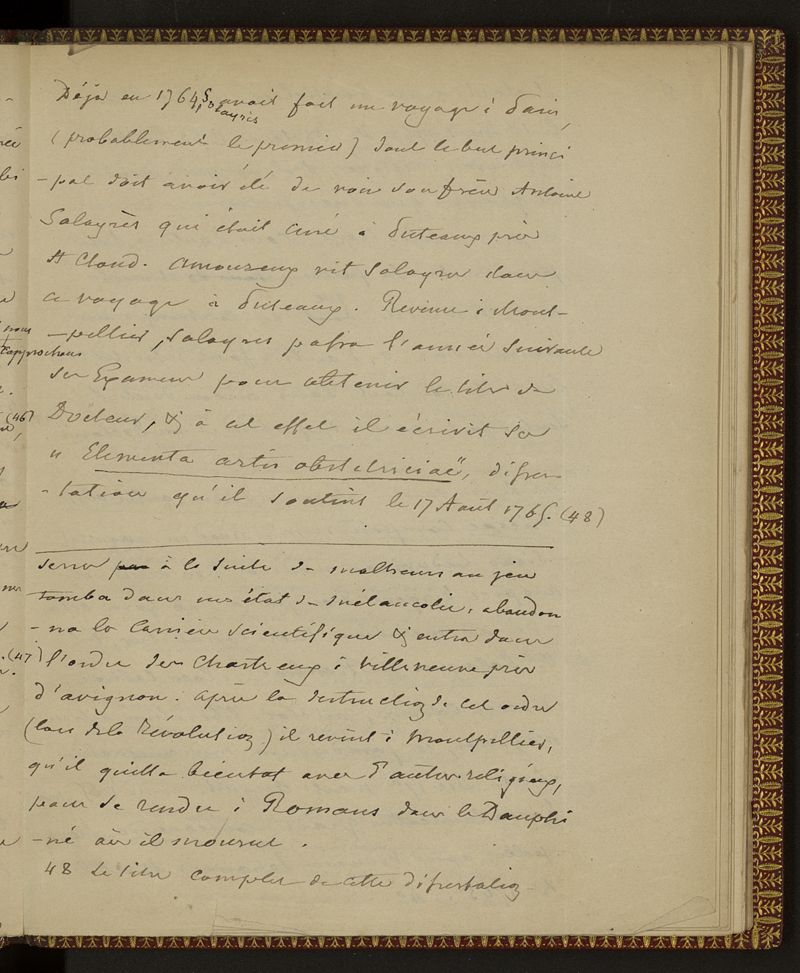 Déjà en 1764, Solayrès avait fait un voyage à Paris,
(probablement le premier) dont le but princi
-pal doit avoir été de voir son frère Antoine
Solayrès qui était curé à Puteaux près
St Cloud. Amoureux vit Solayrès dans
ce voyage à Puteaux. Revenu à Mont-
-pellier, Solayres passa l'année suivante
ses Examens pour obtenir le titre de
Docteur, & à cet effet il écrivit ses
" Elementa artis obstetriciae", disser
-tation qu'il soutint le 17 Août 1765. (48)
à la suite de malheurs au jeu
tomba dans un état de mélancolie, abandon
-na la Carrière scientifique & entra dans
l'ordre des Chartreux à Villeneuve près
d'avignon. Après la destruction de cet ordre
(lors de la Révolution) il revint à Montpellier,
qu'il quitta bientot avec d'autres religieux,
pour se rendre à Romans dans le Dauphi
-né où il mourut.
48 Le titre complet de cette dissertation
nous
rapprochons
(46)
(47)